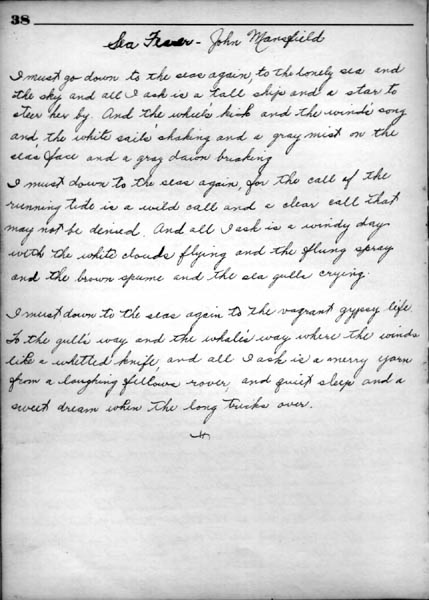 38
Sea Fever - John Mansfield
I must go down to the seas again, to the lonely sea and
the sky and all I ask is a tall ship and a star to
steer her by. And the wheels kick and the wind's song
and the white sails' shaking and a gray mist on the
sea's face and a gray dawn breaking
I must down to the seas again, for the call of the
running tide is a wild call and a clear call that
may not be denied. And all I ask is a windy day
with the white clouds flying and the flung spray
and the brown spume and the sea gulls crying.
I must down to the seas again to the vagrant gypsy life
To the gull's way and the whale's way where the winds
like a whetted knife, and all I ask is a merry yarn
from a laughing fellows rover, and quiet sleep and a
sweet dream when the long tricks over.